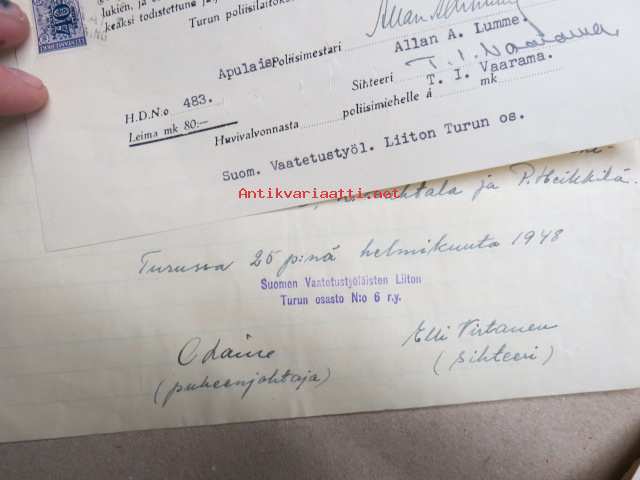 lukien, ja
keäksi todistettuna ja
Turun poliisilaitok
Allan
ApulaisPoliisimestari
Allan A. Lumme.
T. I. Vaarama
Sihteeri
T. I. Vaarama.
H.D.N:o 483.
Leima mk 80:—
Huvivalvonnasta poliisimiehelle á mk
Suom. Vaatetustyöl. Liiton Turun os.
Antikvariaatti.net
ja P. Heikkilä.
Turussa 25 p:nä helmikuuta 1948
Suomen Vaatetustyöläisten Liiton
Turun osasto N:o 6 r.y.
O Laine
Elli Virtanen
(puheenjohtaja)
(sihteeri)